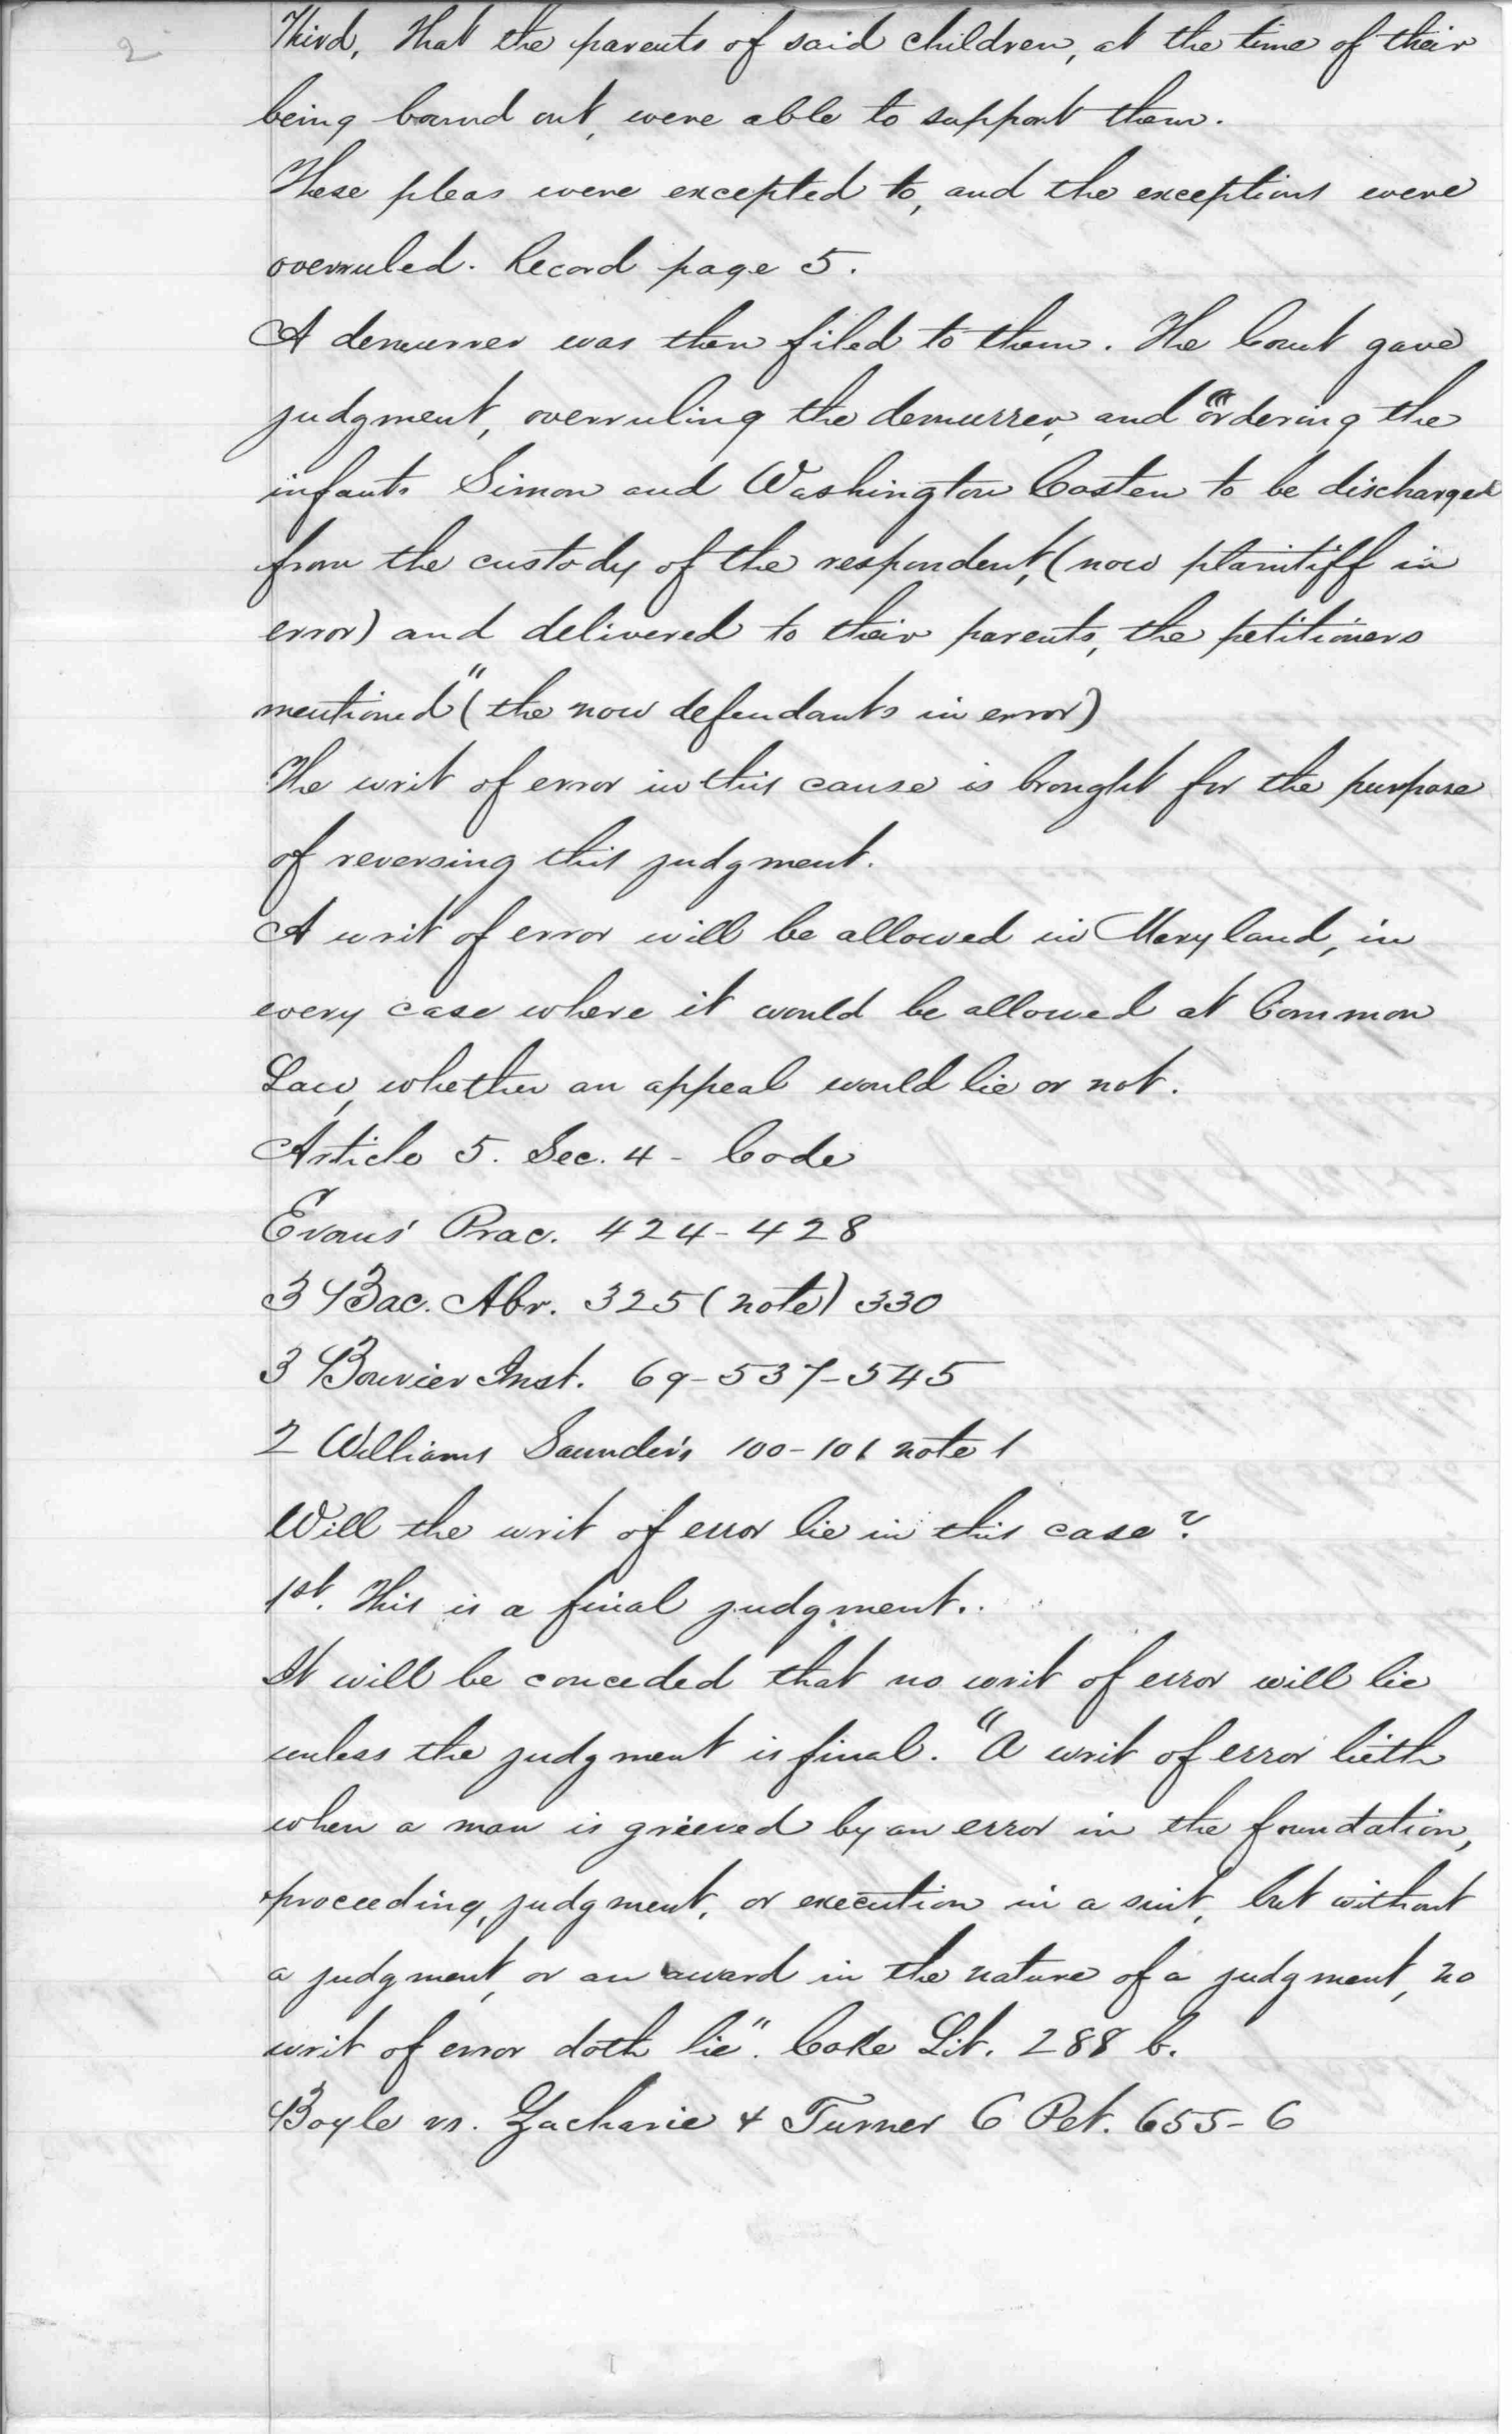 2
Third, That the parents of said children, at the time of their
being bound out, were able to support them.
These pleas were excepted to, and the exceptions were
overruled. Record page 5.
A demurrer was then filed to them. The Court gave
judgment, overruling the demurrer, and "ordering the
infants Simon and Washington Costen to be discharged
from the custody of the respondent, (now plaintiff in
error) and delivered to their parents, the petitioners
mentioned" (the now defendants in error)
The writ of error in this cause is brought for the purpose
of reversing this judgment.
A writ of error will be allowed in Maryland, in
every case where it would be allowed at Common
Law, whether an appeal would lie or not.
Article 5. Sec. 4 - Code
Evans' Prac. 424-428
3 Bac. Abr. 325 (note) 330
3 Bouvier Inst. 69-537-545
2 Williams Saunders 100-101 note 1
Will the writ of error lie in this case?
1st. This is a final judgment.
It will be conceded that no writ of error will lie
unless the judgment is final. "A writ of error lieth
when a man is grieved by an error in the foundation,
proceeding, judgment, or execution in a suit, but without
a judgment, or an award in the nature of a judgment, no
writ of error doth lie". Coke Lit. 288 b.
Boyle vs. Zacharie & Turner 6 Pet. 655-6